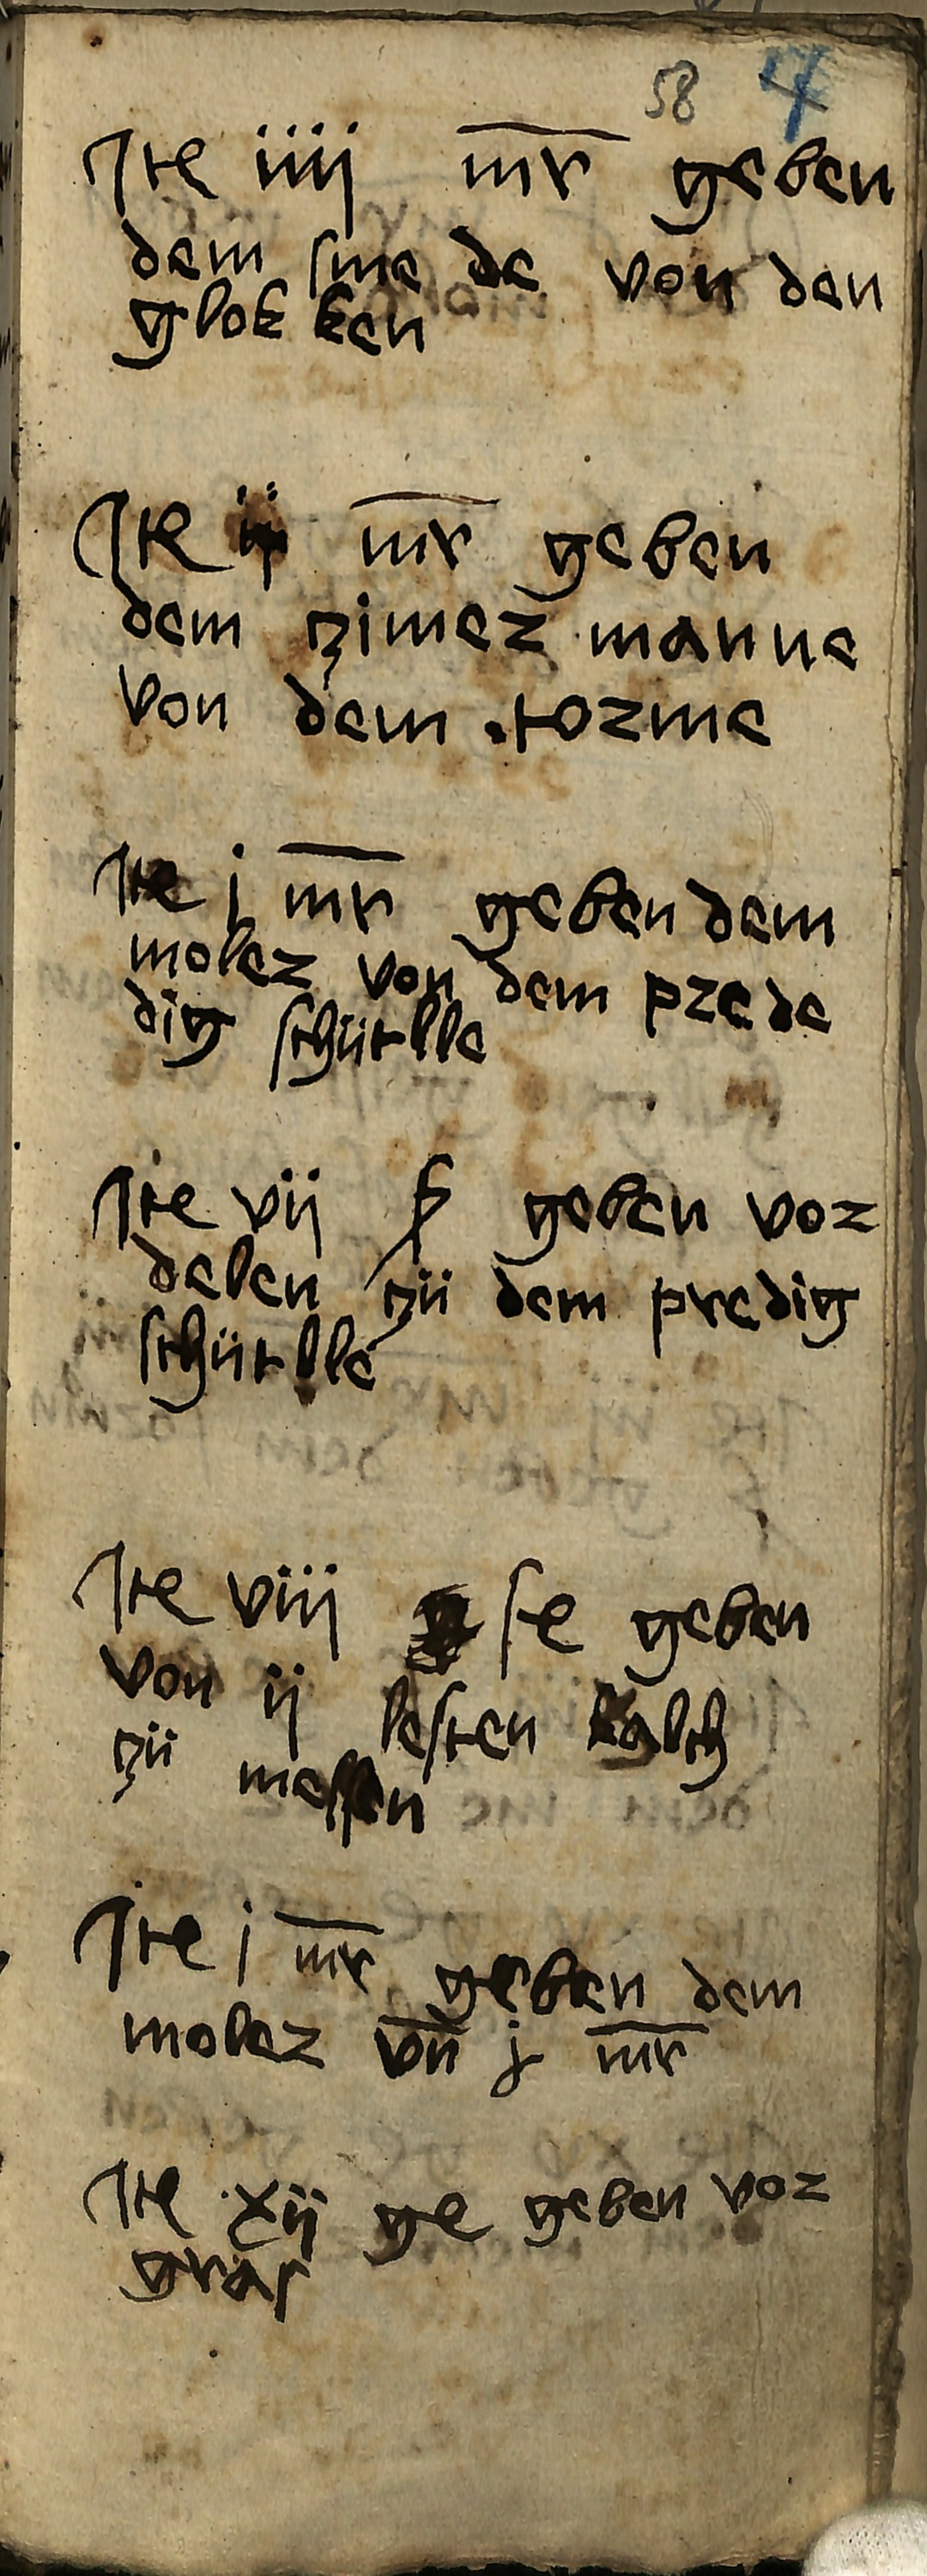 58 4
Ite iiij mr geben
dem smede von den
glokken
Ite ij mr geben
dem zimer manne
von dem torme
Ite j mr geben dem
moler von dem prede
dig schtülle
Ite vij geben vor
delen zü dem predig
schtülle
Ite viij se geben
von ij lesten kalch
zü messen
Ite j mr geben dem
moler vn̄ j mr
Ite xij ge geben vor
gras